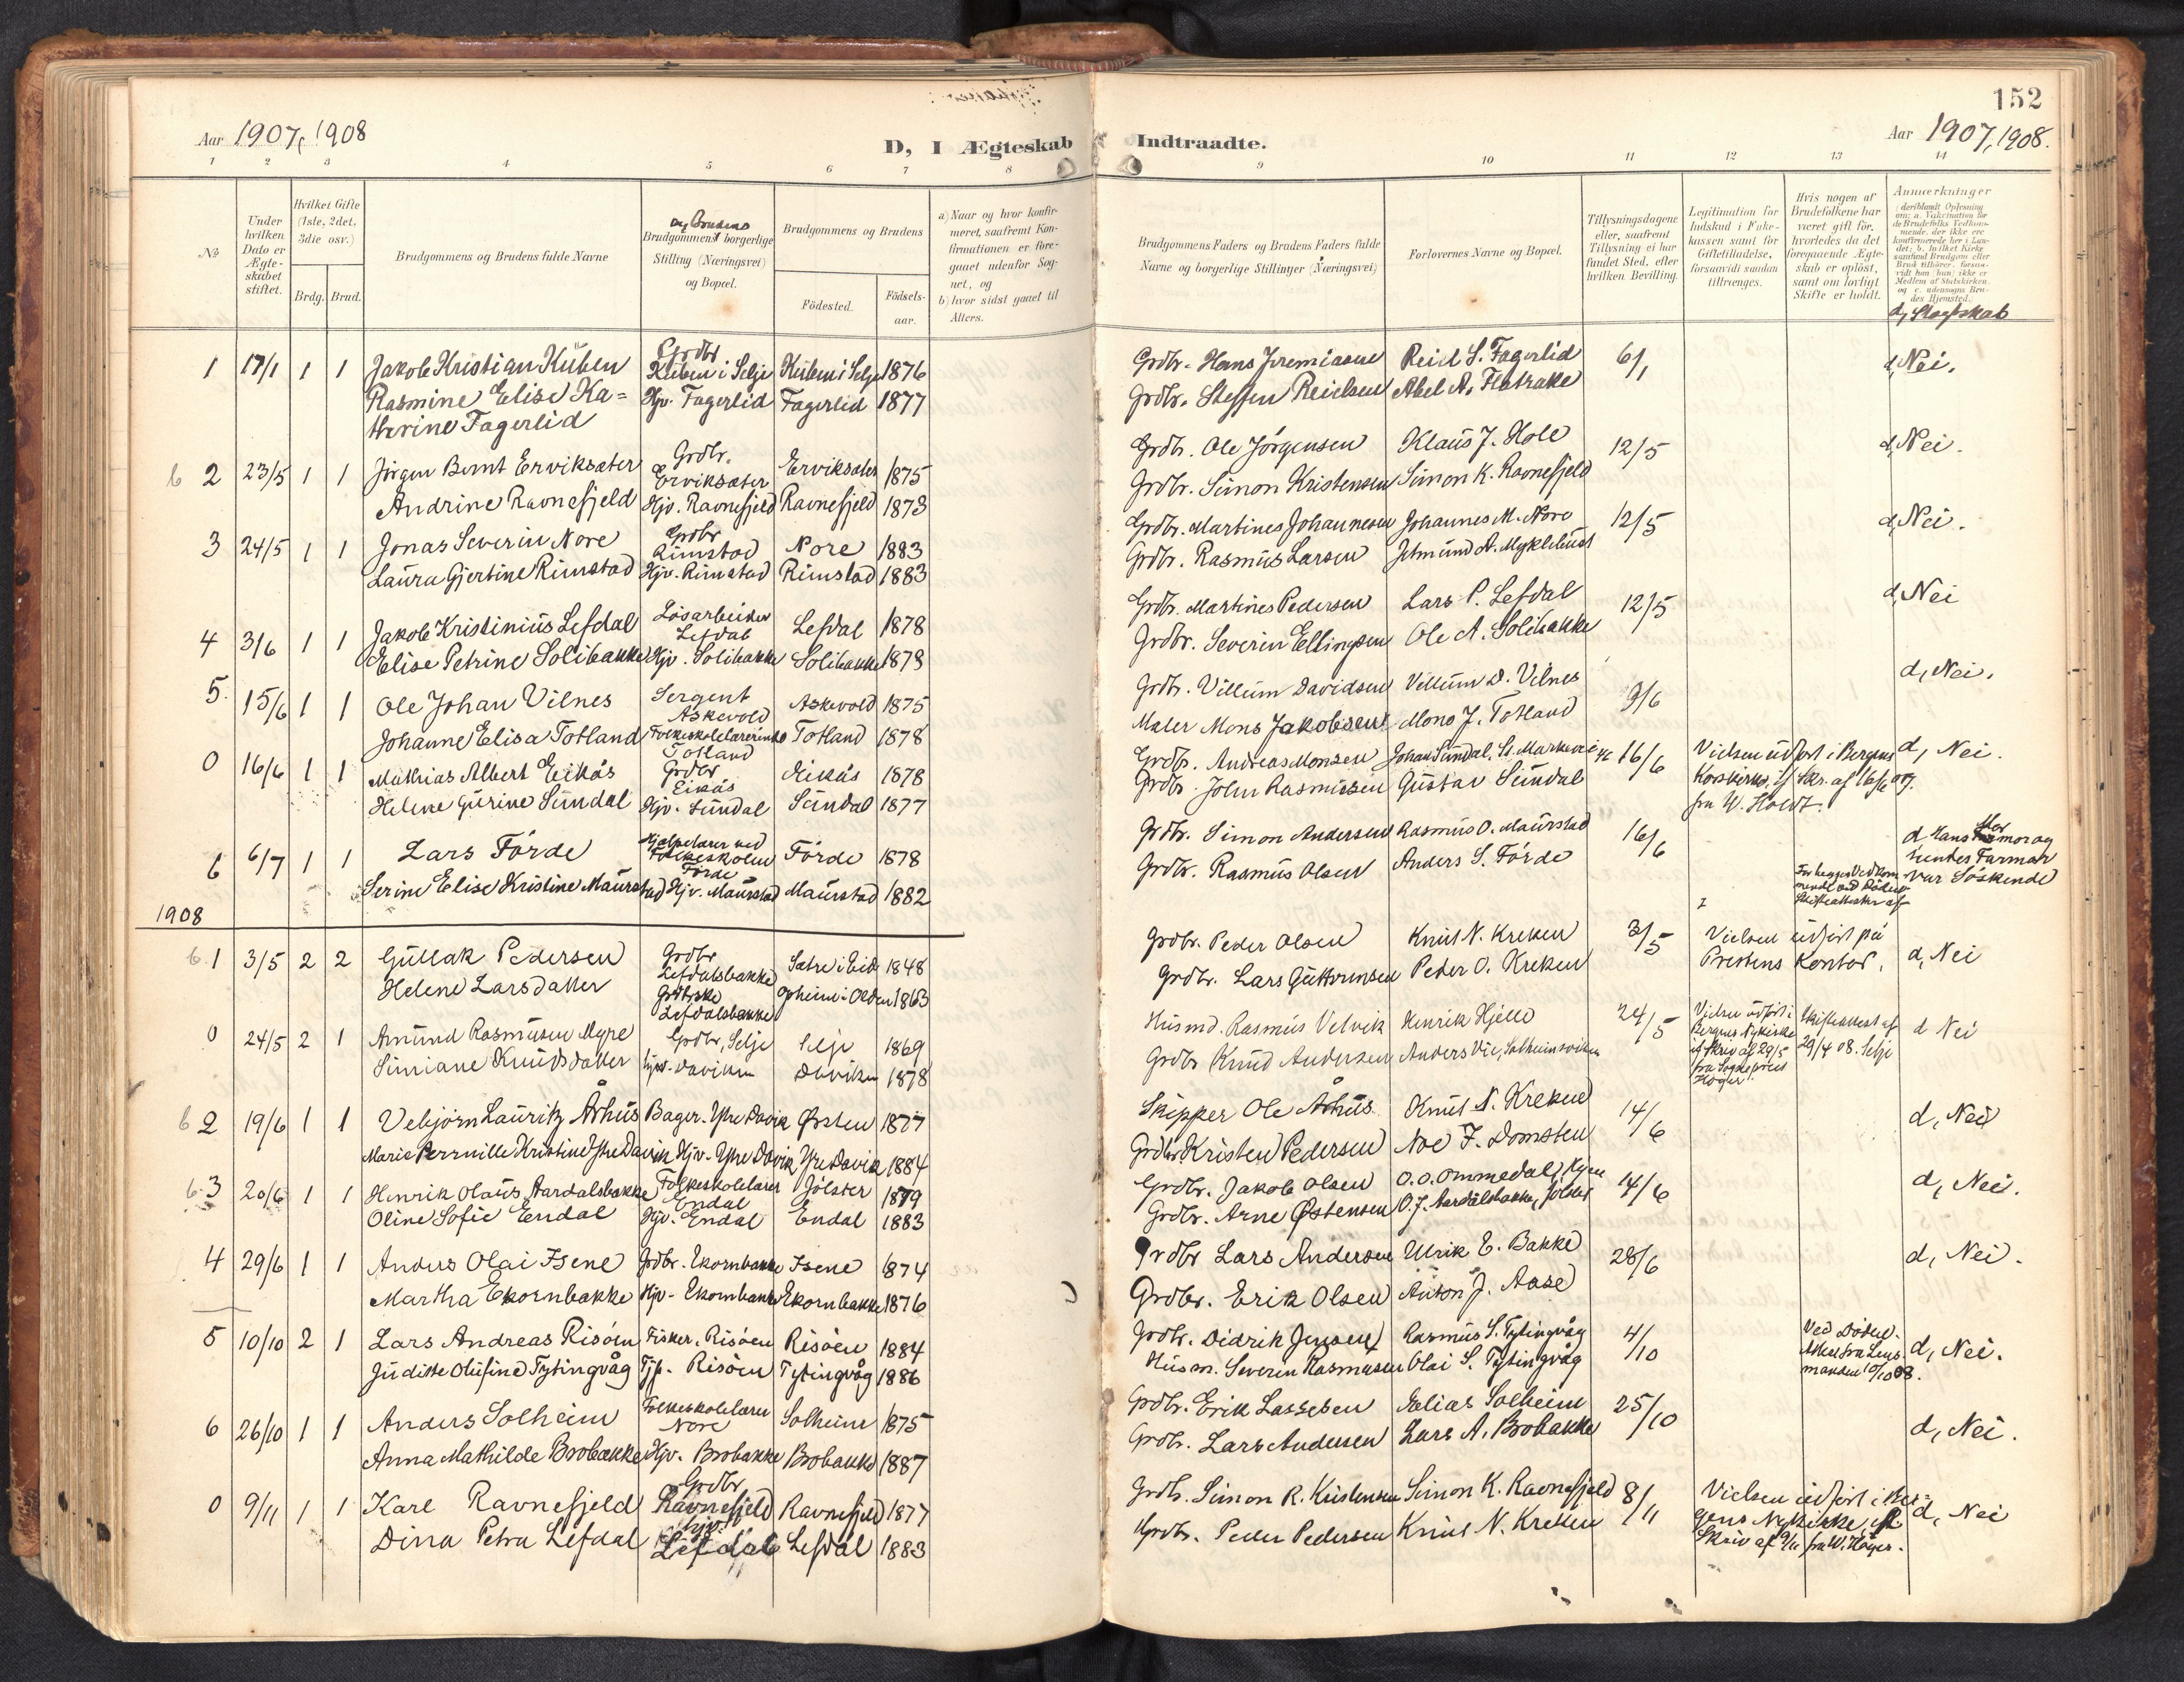 152
Aar 1907, 1908
D, I Ægteskab Indtraadte.
Aar 1907, 1908.
1 2 3 4 5 6 7 8 9 10 11 12 13 14
№
Under hvilken Dato er Ægteskabet stiftet.
Hvilket Gifte (1ste, 2det, 3die osv.)
Brdg. Brud.
Brudgommens og Brudens fulde Navne
og Brudens
Brudgommens borgerlige Stilling (Næringsvei) og Bopæl.
Brudgommens og Brudens
Födested.
Födsels-aar.
a) Naar og hvor konfirmeret, saafremt Konfirmationen er foregaaet udenfor Sognet, og
b) hvor sidst gaaet til Alters.
Brudgommens Faders og Brudens Faders fulde Navne og borgerlige Stillinger (Næringsvei)
Forlovernes Navne og Bopæl.
Tillysningsdagene eller, saafremt Tillysning ei har fundet Sted, efter hvilken Bevilling.
Legitimation for Indskud i Enkekassen samt for Giftetilladelse, forsaavidt saadan tiltrænges.
Hvis nogen af Brudefolkene har været gift för, hvorledes da det foregaaende Ægteskab er oplöst, samt om lovligt Skifte er holdt.
Anmærkninger
d, Slægtskab
1 17/1 1 1 Jakob Kristian Küben Grdbr Küben i Selje Küben i Selje 1876 Grdbr. Hans Jeremiasen Reid S. Fagerlid 6/1 d, Nei.
Rasmine Elise Ka= Hjv. Fagerlid Fagerlid 1877 Grdbr. Steffen Reidsen Abel A. Flatrake
therine Fagerlid
b 2 23/5 1 1 Jörgen Bernt Erviksæter Grdbr. Erviksæter Erviksæter 1875 Grdbr. Ole Jörgensen Klaüs J. Hole 12/5 d, Nei.
Andrine Ravnefjeld Hjv. Ravnefjeld Ravnefjeld 1873 Grdbr. Simon Kristensen Simon K. Ravnefjeld
3 24/5 1 1 Jonas Severin Nore Grdbr Rimstad Nore 1883 Grdbr. Martines Johannesen Johannes M. Nore 12/5 d, Nei.
Laura Gjertine Rimstad Hjv. Rimstad Rimstad 1883 Grdbr. Rasmüs Larsen Jetmünd A. Myklebüst
4 3/6 1 1 Jakob Kristiniüs Lefdal Lösarbeider Lefdal Lefdal 1878 Grdbr. Martines Pedersen Lars P. Lefdal 12/5 d, Nei
Elise Petrine Solibakke Hjv. Solibakke Solibakke 1878 Grdbr. Severin Ellingsen Ole A. Solibakke
5. 15/6 1 1 Ole Johan Vilnes Sergent Askevold Askevold 1875 Grdbr. Villum Davidsen Villum D. Vilnes 9/6 d, Nei.
Johanne Elisa Totland Folkeskolelærerinde Totland Totland 1878 Maler Mons Jakobsen Mons J. Totland
0 16/6 1 1 Mathias Albert Eikås Grdbr Eikås Eikås 1878 Grdbr. Andreas Monsen Johan Sündal, St. Markevei 16/6 Vielsen üdfört i Bergens d, Nei.
Helene Gürine Sündal Hjv. Sündal Sündal 1877 Grdbr. John Rasmüssen Güstav Sündal Korskirke, if Skr. af 16/6 07.
fra W. Holdt.
6 6/7 1 1 Lars Förde Hjælpelærer ved Folkeskolen Förde Förde 1878 Grdbr. Simon Andersen Rasmüs O. Maürstad 16/6 d, Hans Mormor og
Serine Elise Kristine Maürstad Hjv. Maürstad Maürstad 1882 Grdbr. Rasmüs Olsen Anders S. Förde hendes Farmor
var Söskende
1908
b. 1 3/5 2 2 Güllak Pedersen Grdbr Lefdalsbakke Sætre i Eid 1848 Grdbr. Peder Olsen Knüt N. Kreken 3/5 Vielsen üdfört på d, Nei
Helene Larsdatter Grdbrske Lefdalsbakke Opheim i Olden 1863 Grdbr. Lars Güttormsen Peder O. Kreken Prestens Kontor.
0 24/5 2 1 Amünd Rasmüsen Myre Grdbr, Selje Selje 1869 Hüsmd. Rasmüs Velvik Henrik Hjelle 24/5 Vielsen üdfört i Bergens Nykirke if Skriv af 29/5 fra Sogneprest Höyer Skifteattest af 29/4 08. Selje d Nei
Simiane Knüdsdatter Hjv. Daviken Daviken 1878 Grdbr Knüd Andersen Anders Vie, Solheimsviken
b 2 19/6 1 1 Vebjörn Lauritz Århüs Bager. Ytre Davik Örsten 1877 Skipper Ole Århüs Knüt N. Kreken 14/6 d, Nei
Marie Pernille Kristine Ytre Davik Hjv. Ytre Davik Ytre Davik 1884 Grdbr. Kristen Pedersen Noe F. Domsten
b. 3 20/6 1 1 Henrik Olaüs Aardalsbakke Folkeskolelærer Endal Jölster 1879 Grdbr. Jakob Olsen O. O. Ommedal, Hyen 14/6 d, Nei.
Oline Sofie Endal Hjv. Endal Endal 1883 Grdbr. Arne Østensen O. J. Aardalsbakke, Jölster
4 29/6 1 1 Anders Olai Isene Grdbr. Ekornbakke Isene 1874 Grdbr Lars Andersen Ulrik E. Bakke 28/6 d, Nei.
Martha Ekornbakke Hjv. Ekornbakke Ekornbakke 1876 Grdbr. Erik Olsen Anton J. Aase
5 10/10 2 1 Lars Andreas Risöen Fisker. Risöen Risöen 1884 Grdbr. Didrik Jensen Rasmüs S. Tytingvåg 4/10 Ved Döden. Attest fra Lensmanden 10/10 08. d, Nei.
Jüditte Olüfine Tytingvåg Tjp. Risöen Tytingvåg 1886 Hüsm. Severin Rasmusen Olai S. Tytingvåg
6 26/10 1 1 Anders Solheim Folkeskolelærer Nore Solheim 1875 Grdbr. Erik Lassesen Elias Solheim 25/10 d, Nei.
Anna Mathilde Brobakke Hjv. Brobakke Brobakke 1887 Grdbr. Lars Andersen Lars A. Brobakke
0 9/11 1 1 Karl Ravnefjeld Grdbr Ravnefjeld Ravnefjeld 1877 Grdbr. Simon R. Kristensen Simon K. Ravnefjeld 8/11 Vielsen üdfört i Ber= d, Nei
Dina Petra Lefdal hjv. Lefdal Lefdal 1883 Grdbr. Peder Pedersen Knüt N. Kreken gens Nykirke if
Skriv af 9/11 fra W. Höyer.